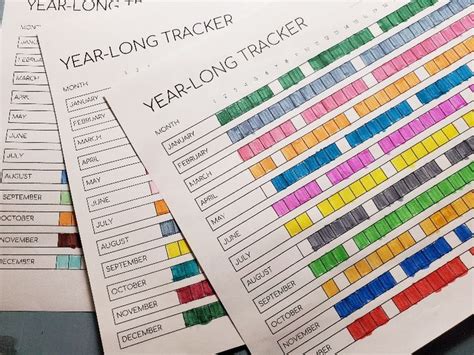 YEAR-LONG TR
AUGUST
SEPTEMBER
OCTOBER
NOVEMBER
DECEMBER
YEAR-LONG TRACKER
MONTH
JANUARY
FEBRUARY
MARCH
APRIL
MAY
JUNE
JULY
AUGUST
SEPTEMBER
OCTOBER
NOVEMBER
DECEMBER
YEAR-LONG TRACKER
MONTH
JANUARY
FEBRUARY
MARCH
APRIL
MAY
JUNE
JULY
AUGUST
SEPTEMBER
OCTOBER
NOVEMBER
DECEMBER